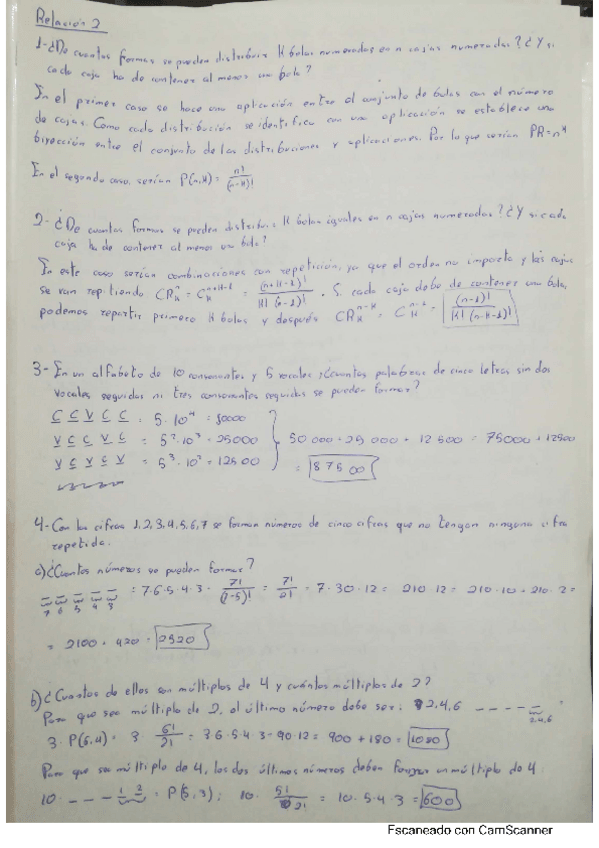 Relación 2
1-¿De cuantas formas se pueden distribuir K bolas numeradas en n cajas numeradas? ¿Y si
cada caja ha de contener al menos una bola?
En el primer caso se hace una aplicación entre el conjunto de bolas con el número
de cajas. Como cada distribución se identifica con una aplicación se establece una
biyección entre el conjunto de las distribuciones y aplicaciones. Por lo que serían PR=n^K
En el segundo caso serían P(n,K) = n!/(n-K)!
2-¿De cuantas formas se pueden distribuir K bolas iguales en n cajas numeradas? ¿Y si cada
caja ha de contener al menos una bola?
En este caso serían combinaciones con repetición, ya que el orden no importa y las cajas
se van repitiendo = (n+K-1)!/K!(n-1)! . Si cada caja debe de contener una bola,
podemos repartir primero K bolas y después (n-1)!/K!(n-K-1)!
3-En un alfabeto de 10 consonantes y 5 vocales ¿Cuantas palabras de cinco letras sin dos
vocales seguidas ni tres consonantes seguidas se pueden formar?
C C V C C = 5·10^4 = 50000
V C C V C = 5^2·10^3 = 25000 50000+25000+12500 = 75000+12500
V C V C V = 5^3·10^2 = 12500 = 87500
4-Con las cifras 1,2,3,4,5,6,7 se forman números de cinco cifras que no tengan ninguna cifra
repetida.
a)¿Cuantos números se pueden formar?
7 6 5 4 3 = 7·6·5·4·3 = 7!/(7-5)! = 7!/2! = 7·30·12 = 210·12 = 210·10+210·2 =
= 2100+420 = 2520
b)¿Cuantos de ellos son múltiplos de 4 y cuántos múltiplos de 2?
Para que sea múltiplo de 2, el último número debe ser: 2,4,6 2,4,6
3·P(6,4) = 3·6!/2! = 3·6·5·4·3 = 90·12 = 900+180 = 1080
Para que sea múltiplo de 4, los dos últimos números deben formar un múltiplo de 4
10· 1 2 = P(5,3); 10·5!/2! = 10·5·4·3 = 600
Escaneado con CamScanner